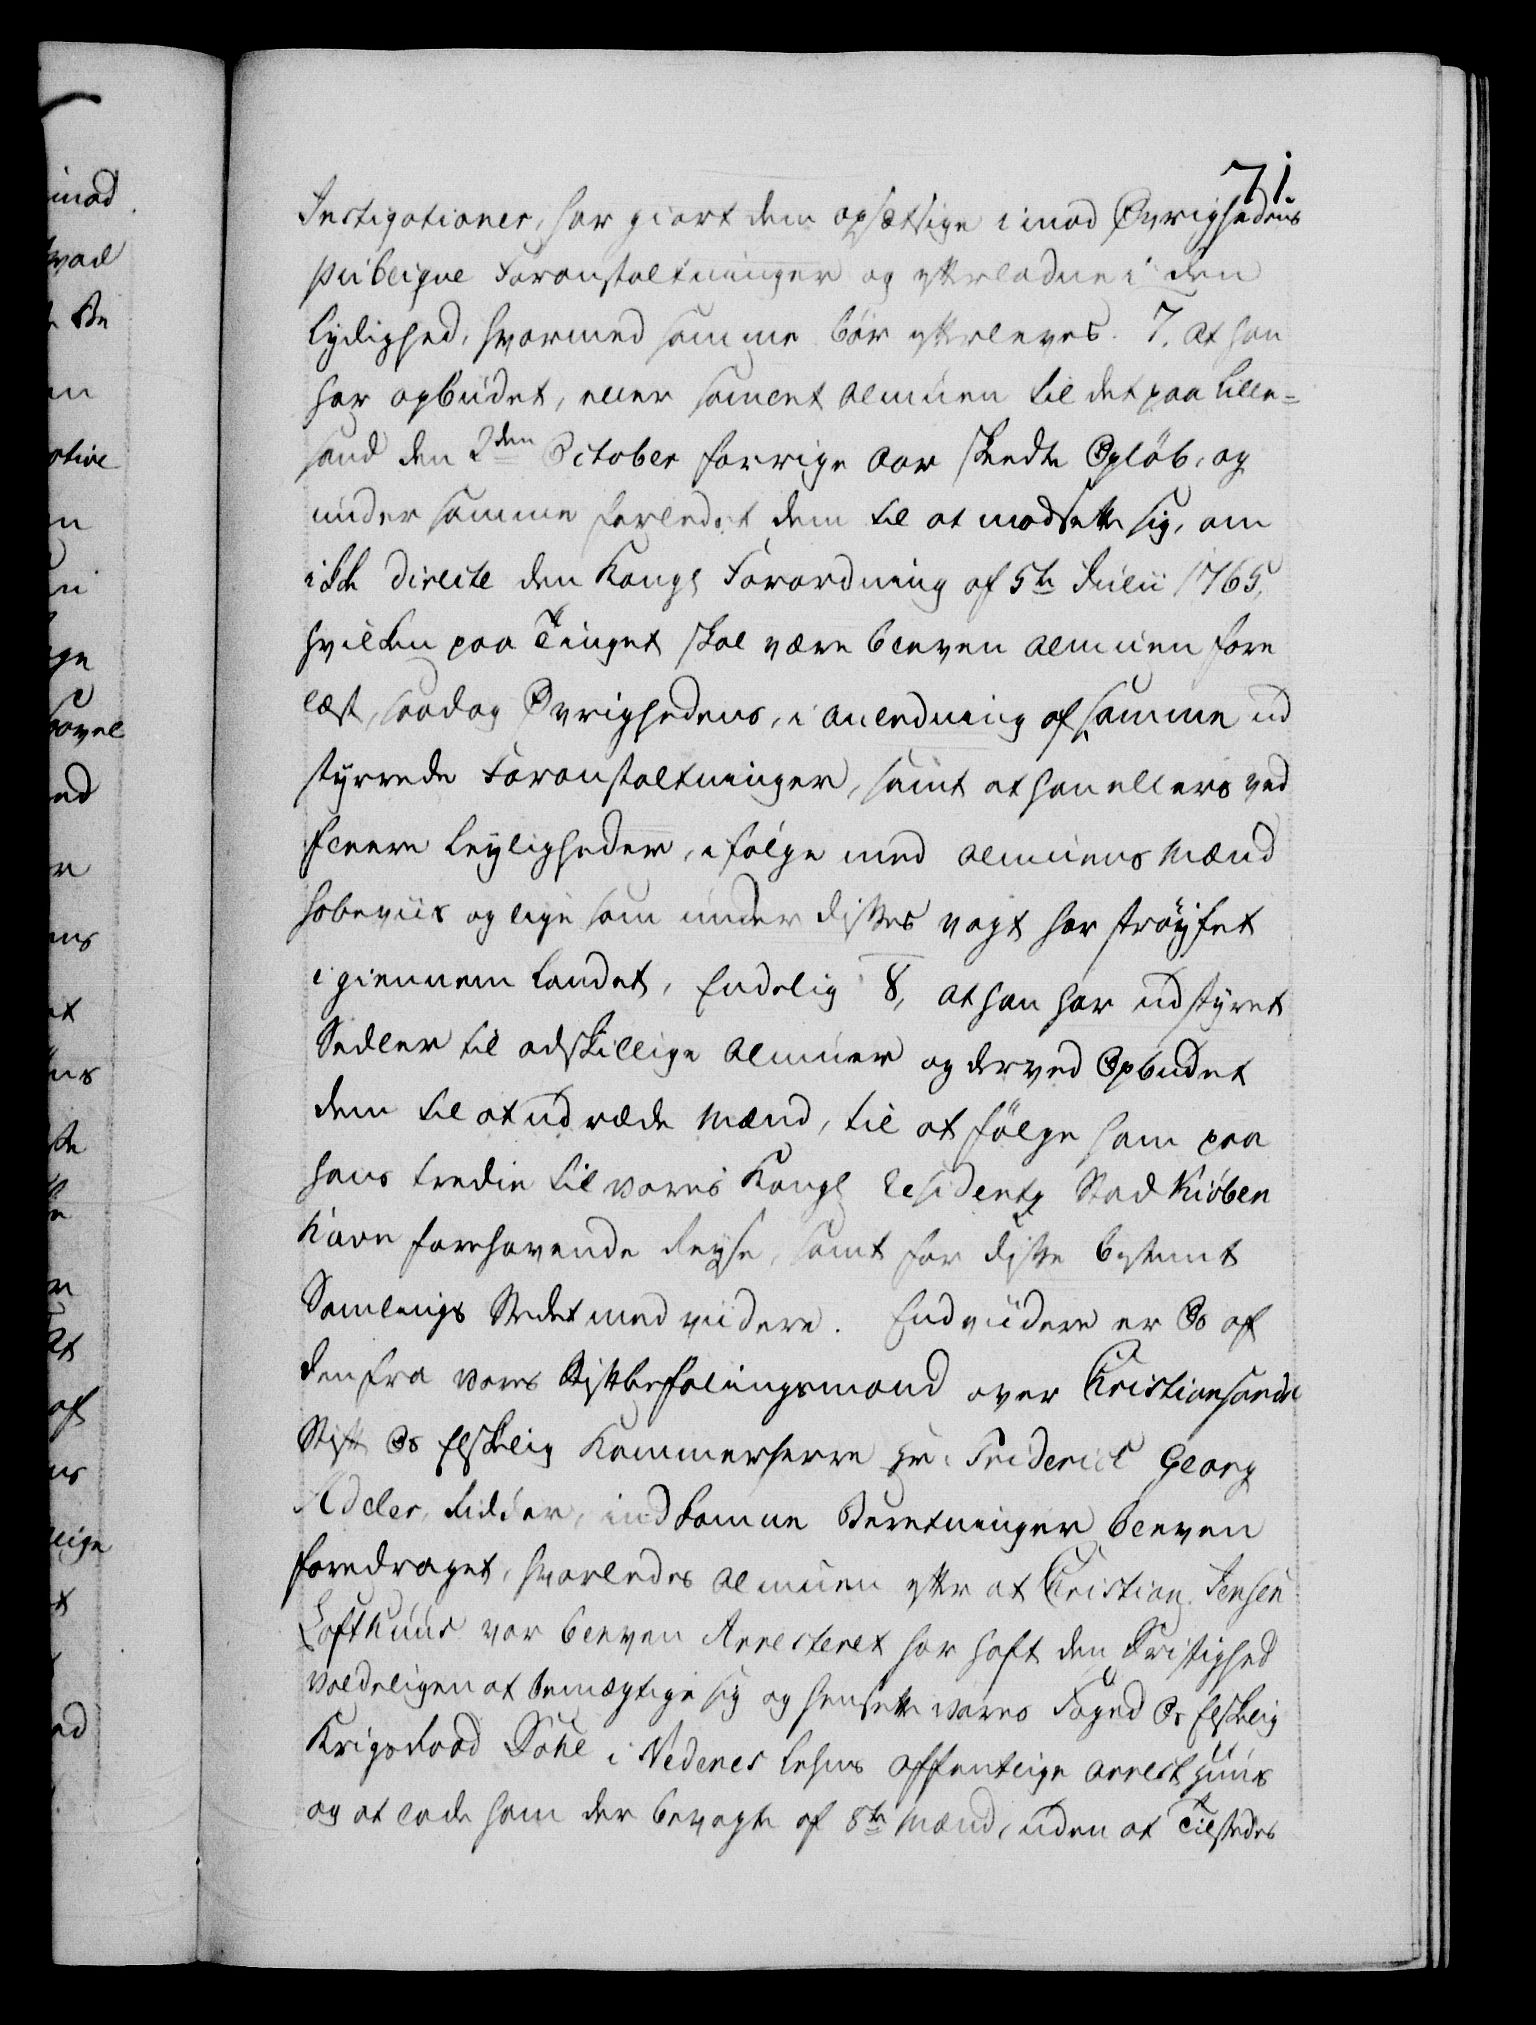 71
Instigationer, har giort dem opsætsige imod Øvrighedens
publiqve Foranstaltninger og efterladne i den
Lydighed, hvormed samme bør efterleves. 7, at han
har opbudet, eller samlet Almuen til det paa Lille-
sand den 2den October forrige Aar skeedte Opløb, og
under samme forledet dem til at modsette sig, om
ikke directe den Kongl Forordning af 5te Julii 1765,
hvilken paa Tinget skal være bleven Almuen fore
læst, saadog Øvrighedens, i Anledning af samme ud
styrrede Foranstaltninger, samt at han ellers ved
fleere Leyligheder, i følge med Almuens Mænd
hobeviis og lige som under disses vagt har strøyfet
igiennem Landet, Endelig 8, at han har udstyret
Sedler til adskillige Almuer og derved Opbudet
dem til at udræde Mænd, til at følge ham paa
hans tredie til vores Kongl Residentz Stad Kiøben
havn forehavende Reyse, samt for disse bestemt
Samlings Stedet med viidere. Endviidere er Os af
den fra vores Stiftbefalingsmand over Christiansands
Stift Os Elskelig Kammerherre Hr: Friderich Georg
Adeler, Ridder, indkomne Beretninger bleven
foredraget, hvorledes Almuen efter at Christian Jensen
Lofthuus var bleven Arresteret har haft den Dristighed
voldeligen at bemægtige sig og hensette vores Foged Os Elskelig
Krigsraad Dahl i Nedenes Lehns offentlige Arrest Huus
og at lade ham der bevogte af 8te Mænd, uden at Tilstedes